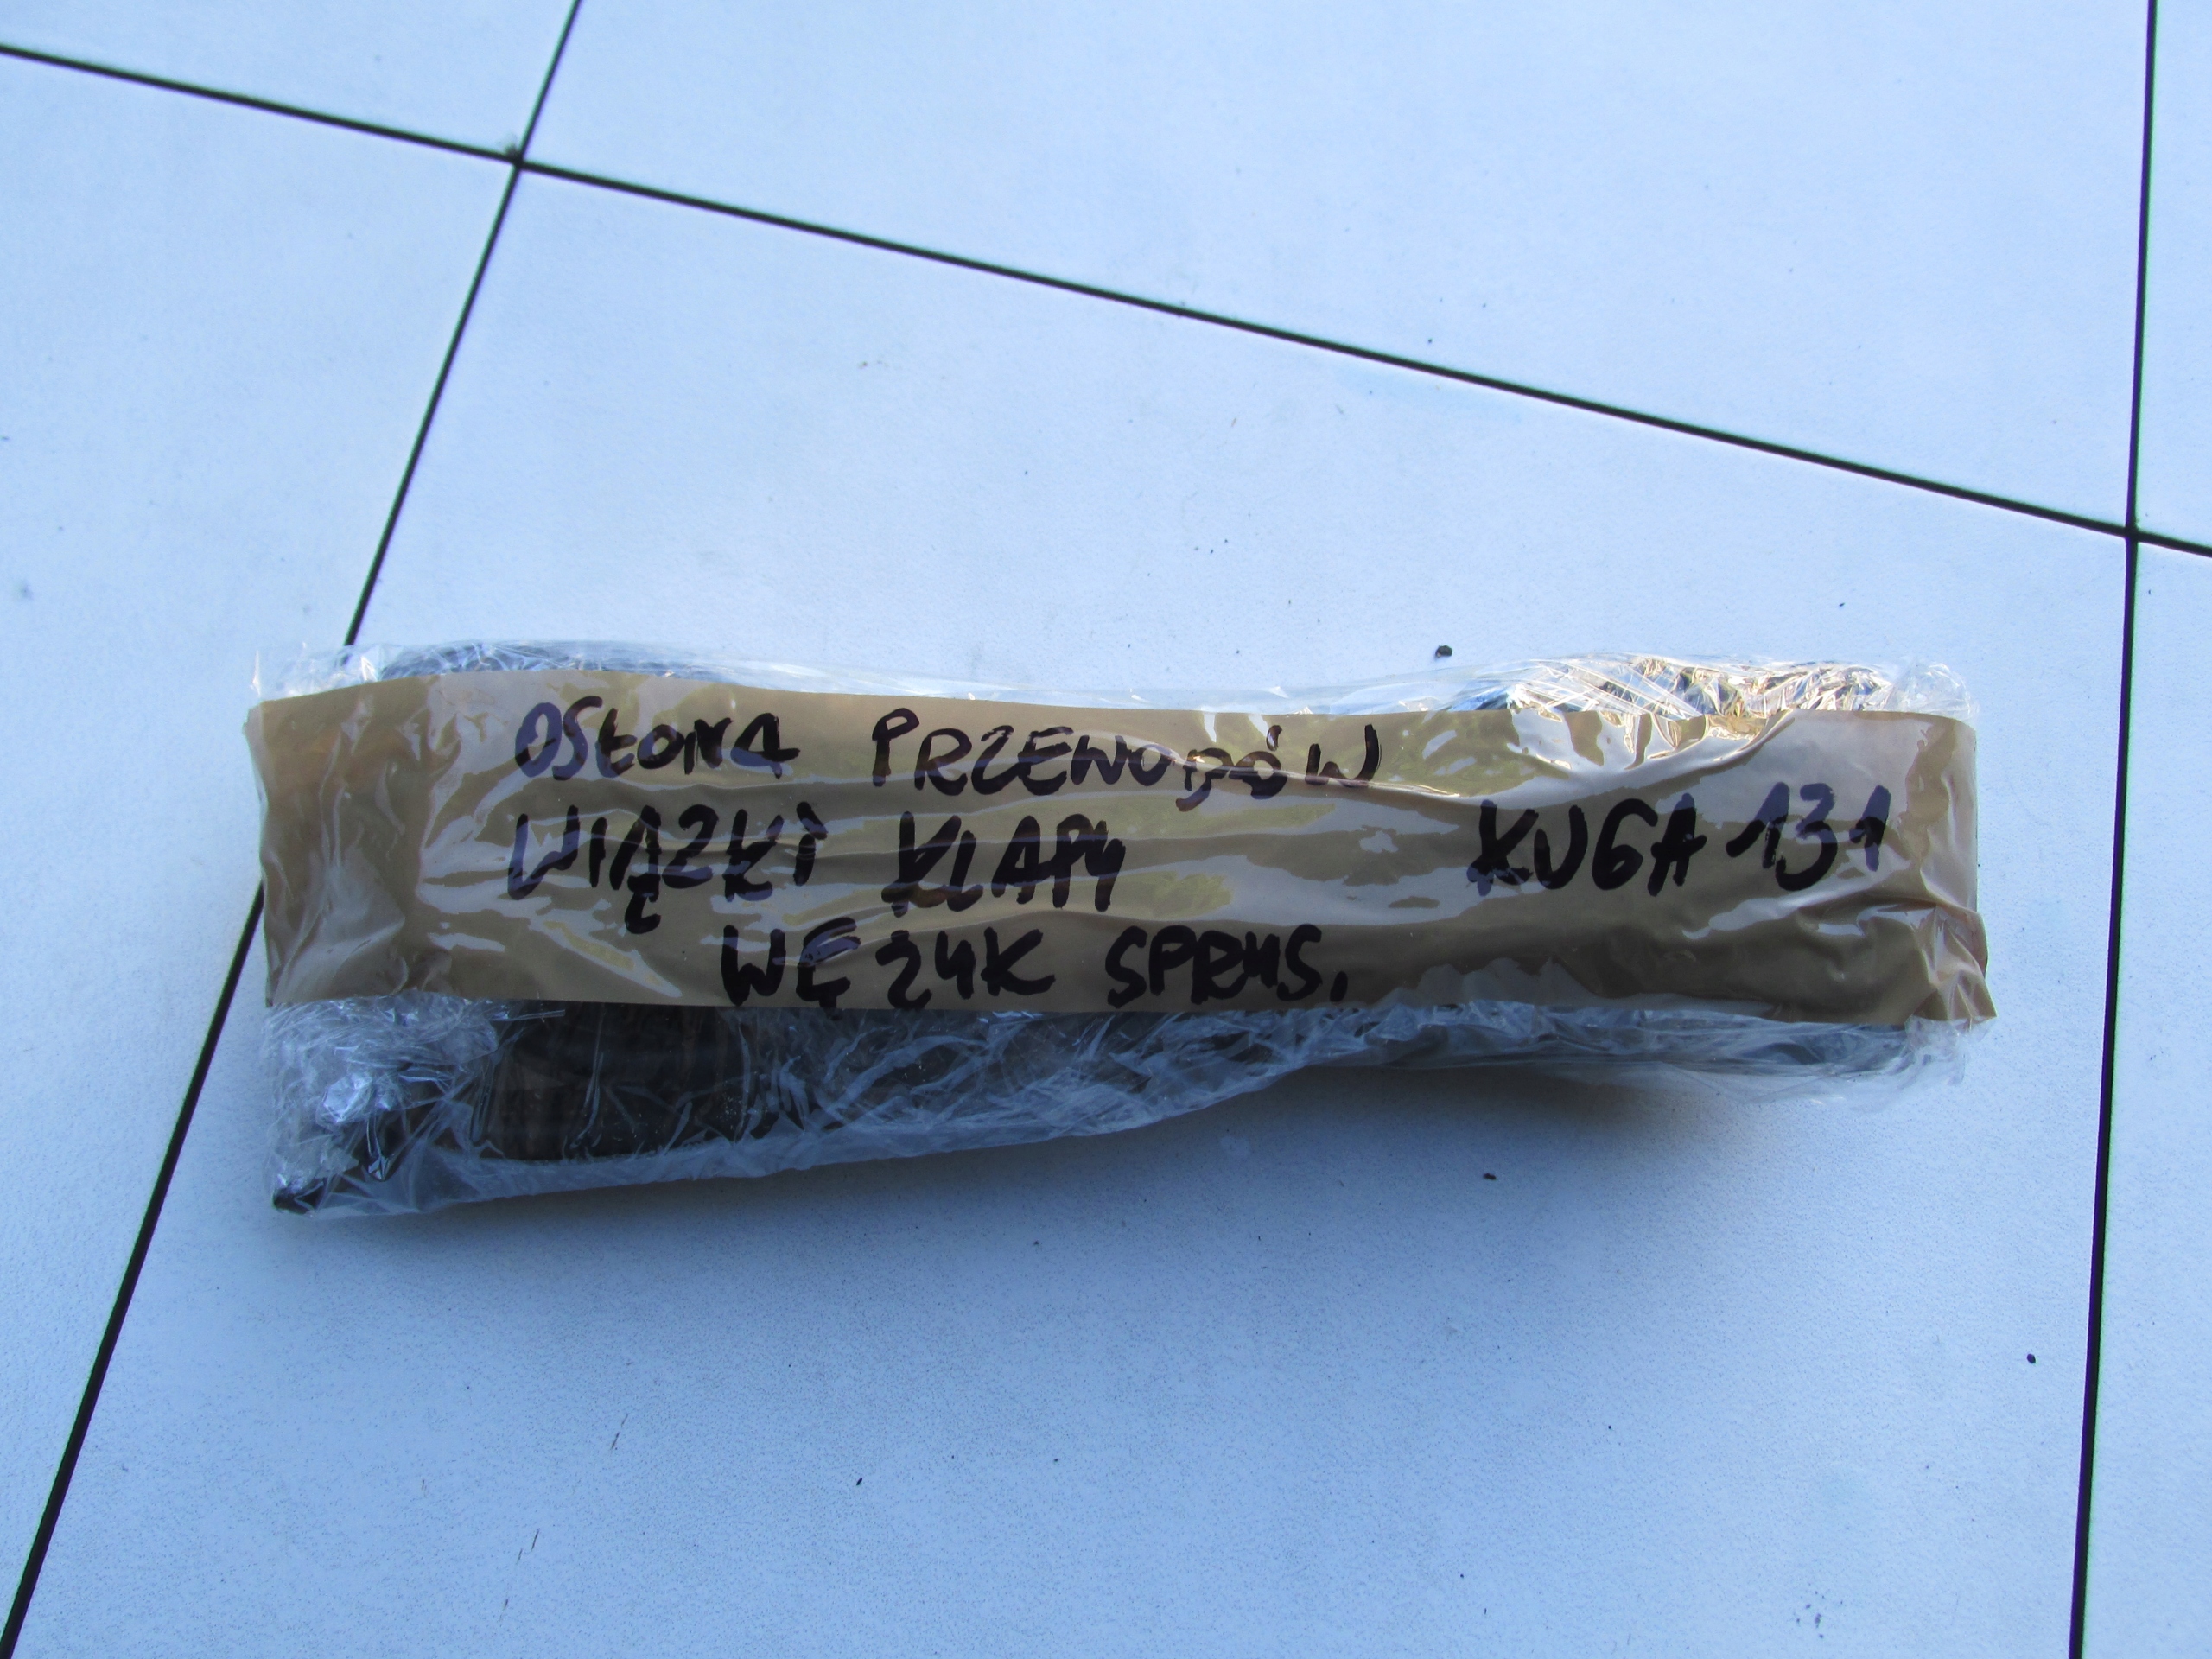 OSŁONA PRZEWODÓW
WIĄZKI KLAPY KUGA 131
WĘŻYK SPRYS.